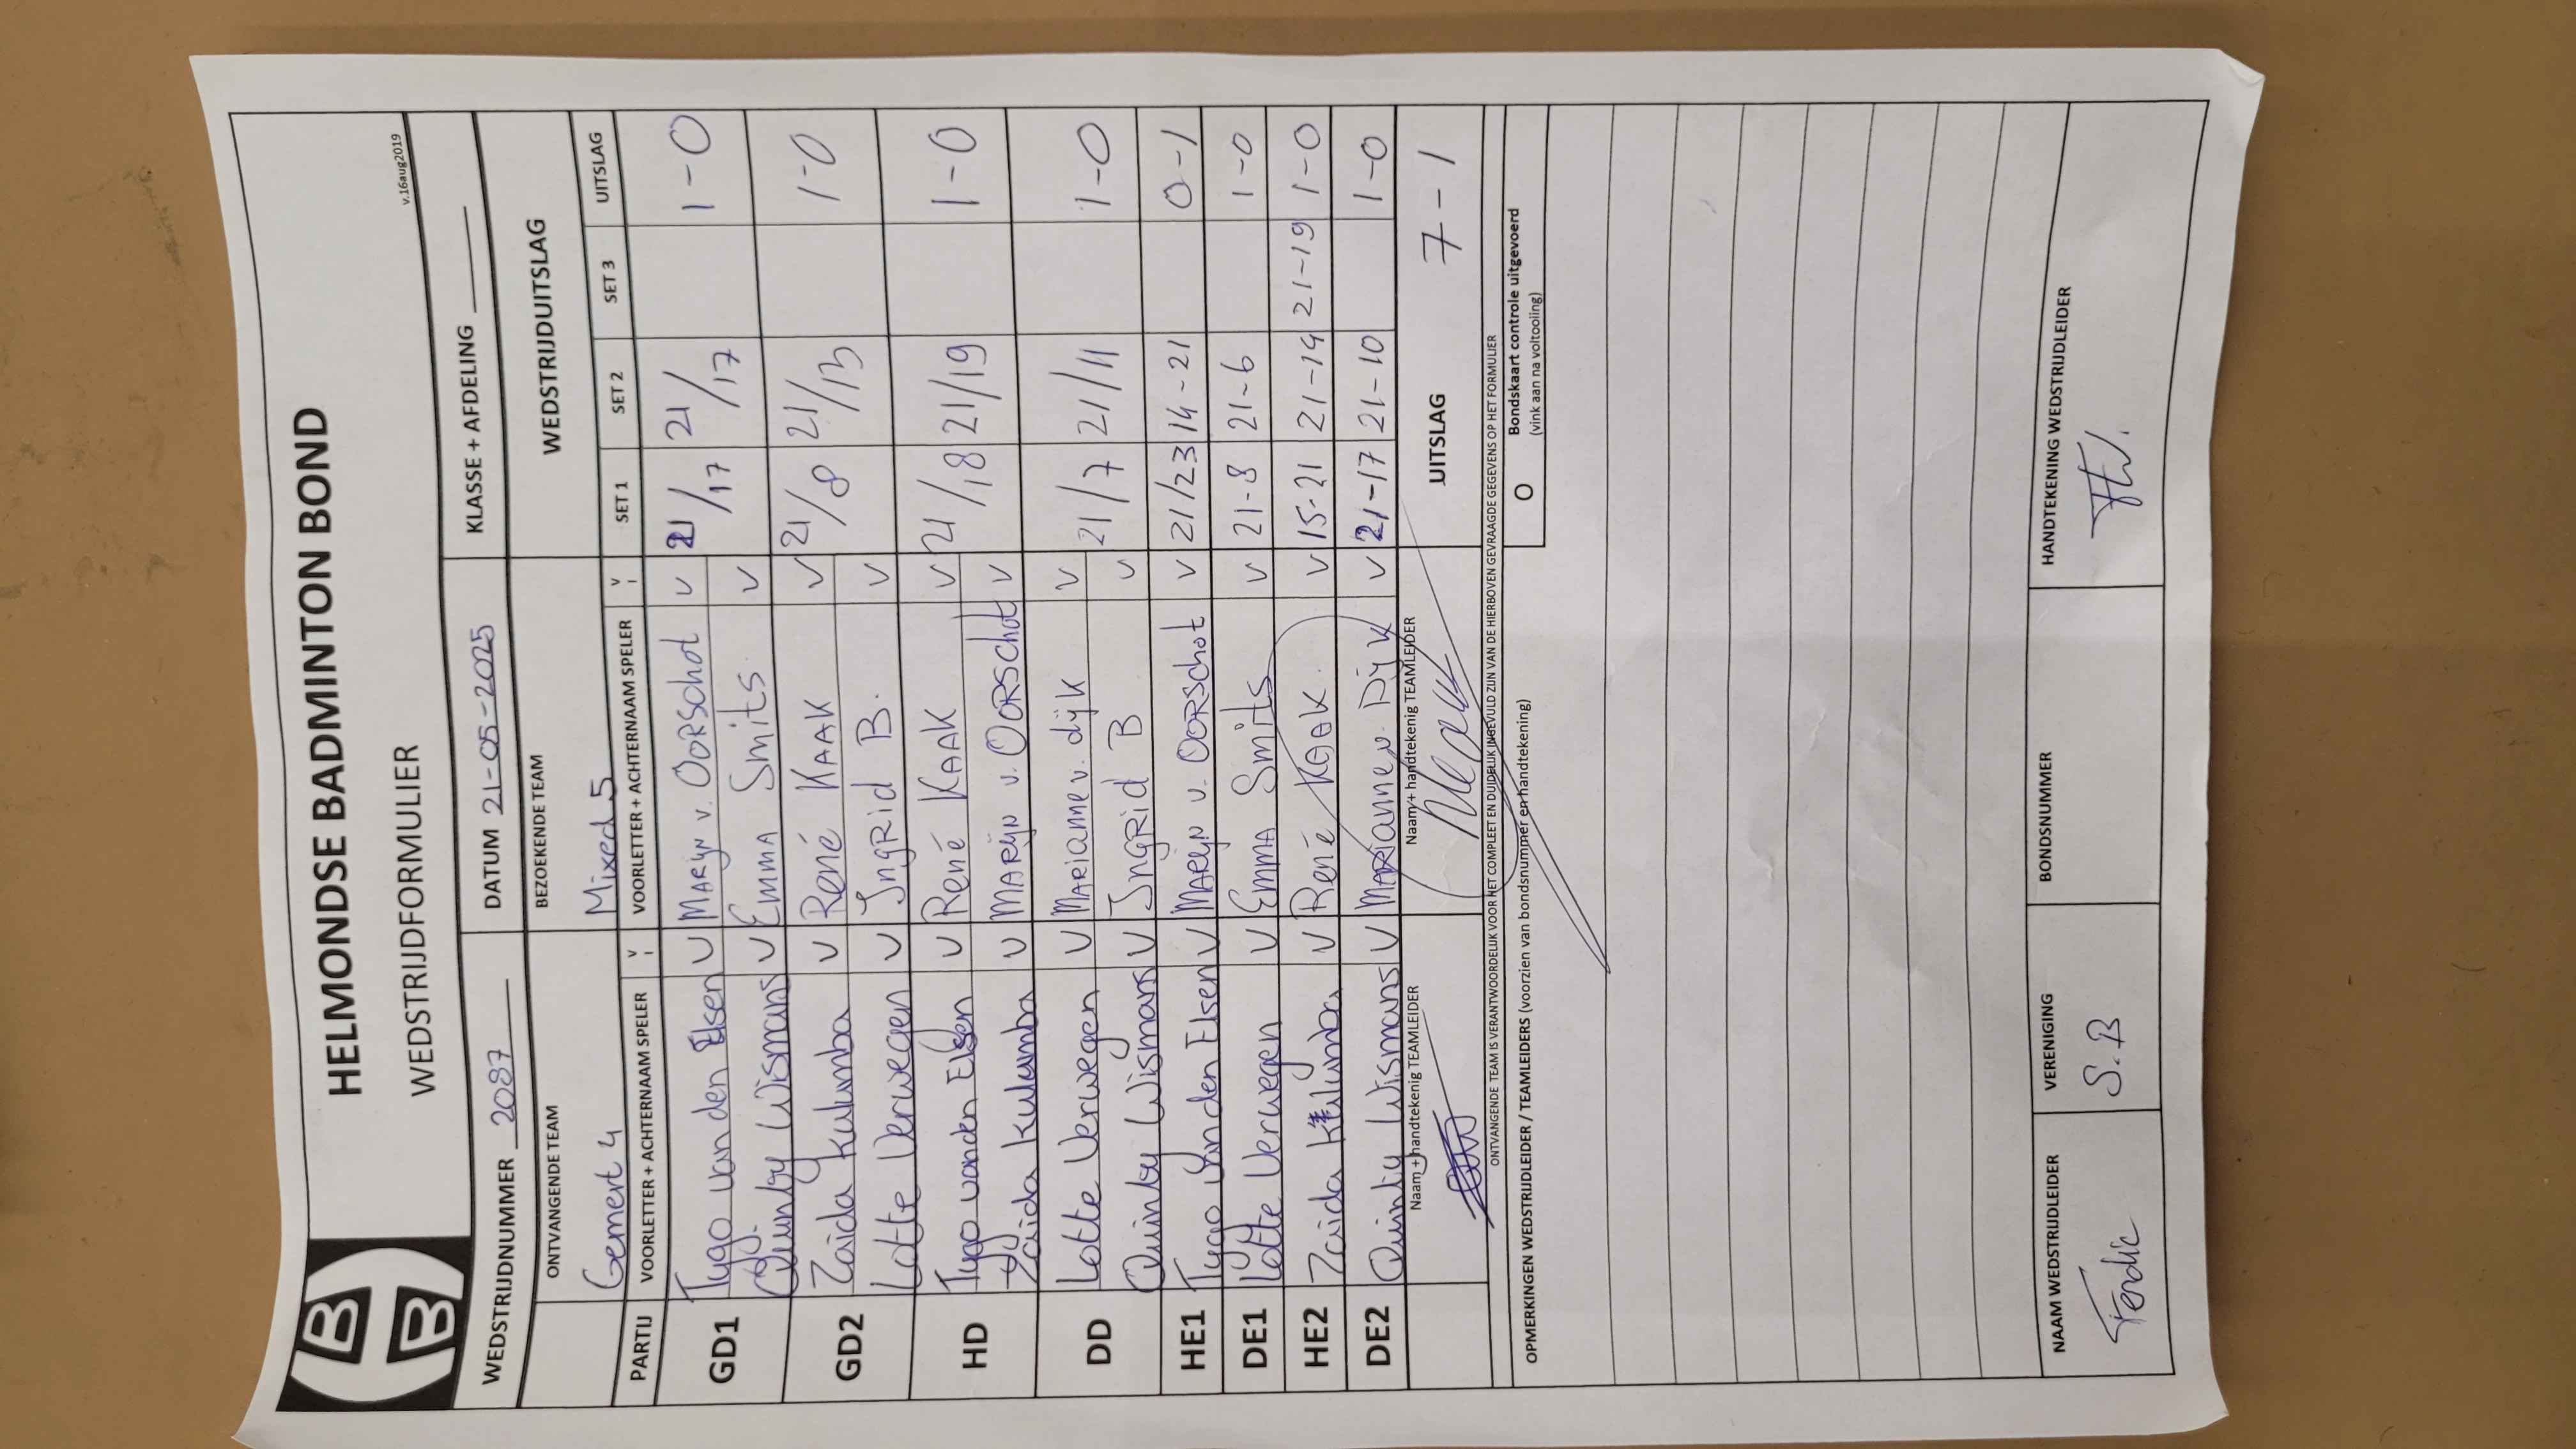 HB
B
HELMONDSE BADMINTON BOND
WEDSTRIJDFORMULIER
v.16aug2019
WEDSTRIJDNUMMER 2087 DATUM 21-05-2025 KLASSE + AFDELING
ONTVANGENDE TEAM BEZOEKENDE TEAM WEDSTRIJDUITSLAG
Gemert 4 Mixed 5
PARTIJ VOORLETTER + ACHTERNAAM SPELER V VOORLETTER + ACHTERNAAM SPELER V SET 1 SET 2 SET 3 UITSLAG
GD1 Tygo van den Elsen V Marijn v. Oorschot V 21/17 21/17 1-0
Quinty Wismans V Emma Smits V
GD2 Zaida Kulumba V René Kaak V 21/8 21/13 1-0
Lotte Verwegen V Ingrid B. V
HD Tygo van den Elsen V René Kaak V 21/18 21/19 1-0
Zaida Kulumba V Marijn v. Oorschot V
DD Lotte Verwegen V Marianne v. dijk V 21/7 21/11 1-0
Quinty Wismans V Ingrid B V
HE1 Tygo van den Elsen V Marijn v. Oorschot V 21/23 14-21 0-1
DE1 Lotte Verwegen V Emma Smits V 21-8 21-6 1-0
HE2 Zaida Kulumba V René Kaak. V 15-21 21-14 21-19 1-0
DE2 Quinty Wismans V Marianne v. Dijk V 21-17 21-10 1-0
Naam + handtekenig TEAMLEIDER Naam + handtekenig TEAMLEIDER UITSLAG 7-1
ONTVANGENDE TEAM IS VERANTWOORDELIJK VOOR HET COMPLEET EN DUIDELIJK INGEVULD ZIJN VAN DE HIERBOVEN GEVRAAGDE GEGEVENS OP HET FORMULIER
OPMERKINGEN WEDSTRIJDLEIDER / TEAMLEIDERS (voorzien van bondsnummer en handtekening) O Bondskaart controle uitgevoerd
(vink aan na voltooiing)
NAAM WEDSTRIJDLEIDER VERENIGING BONDSNUMMER HANDTEKENING WEDSTRIJDLEIDER
Ferdie S.B